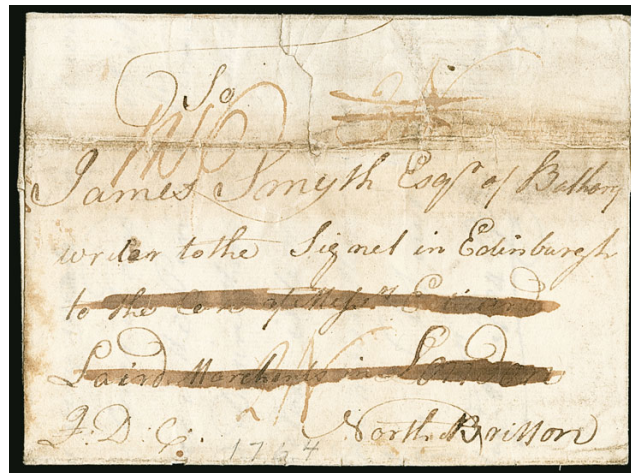 To
James Smyth Esqr of
writer to the Signet in Edinburgh
to the Care of Messrs
Laird Merchants in London
J. D. C.
North Britton
1734